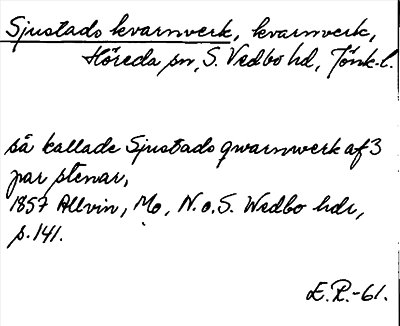 Sjustads kvarnverk, kvarnverk,
Höreda sn, S. Vedbo hd, Jönk. l.
så kallade Sjustads qvarnwerk af 3
par stenar,
1857 Allvin, Mo, N. o. S. Wedbo hdr,
s. 141.
E.R.-61.